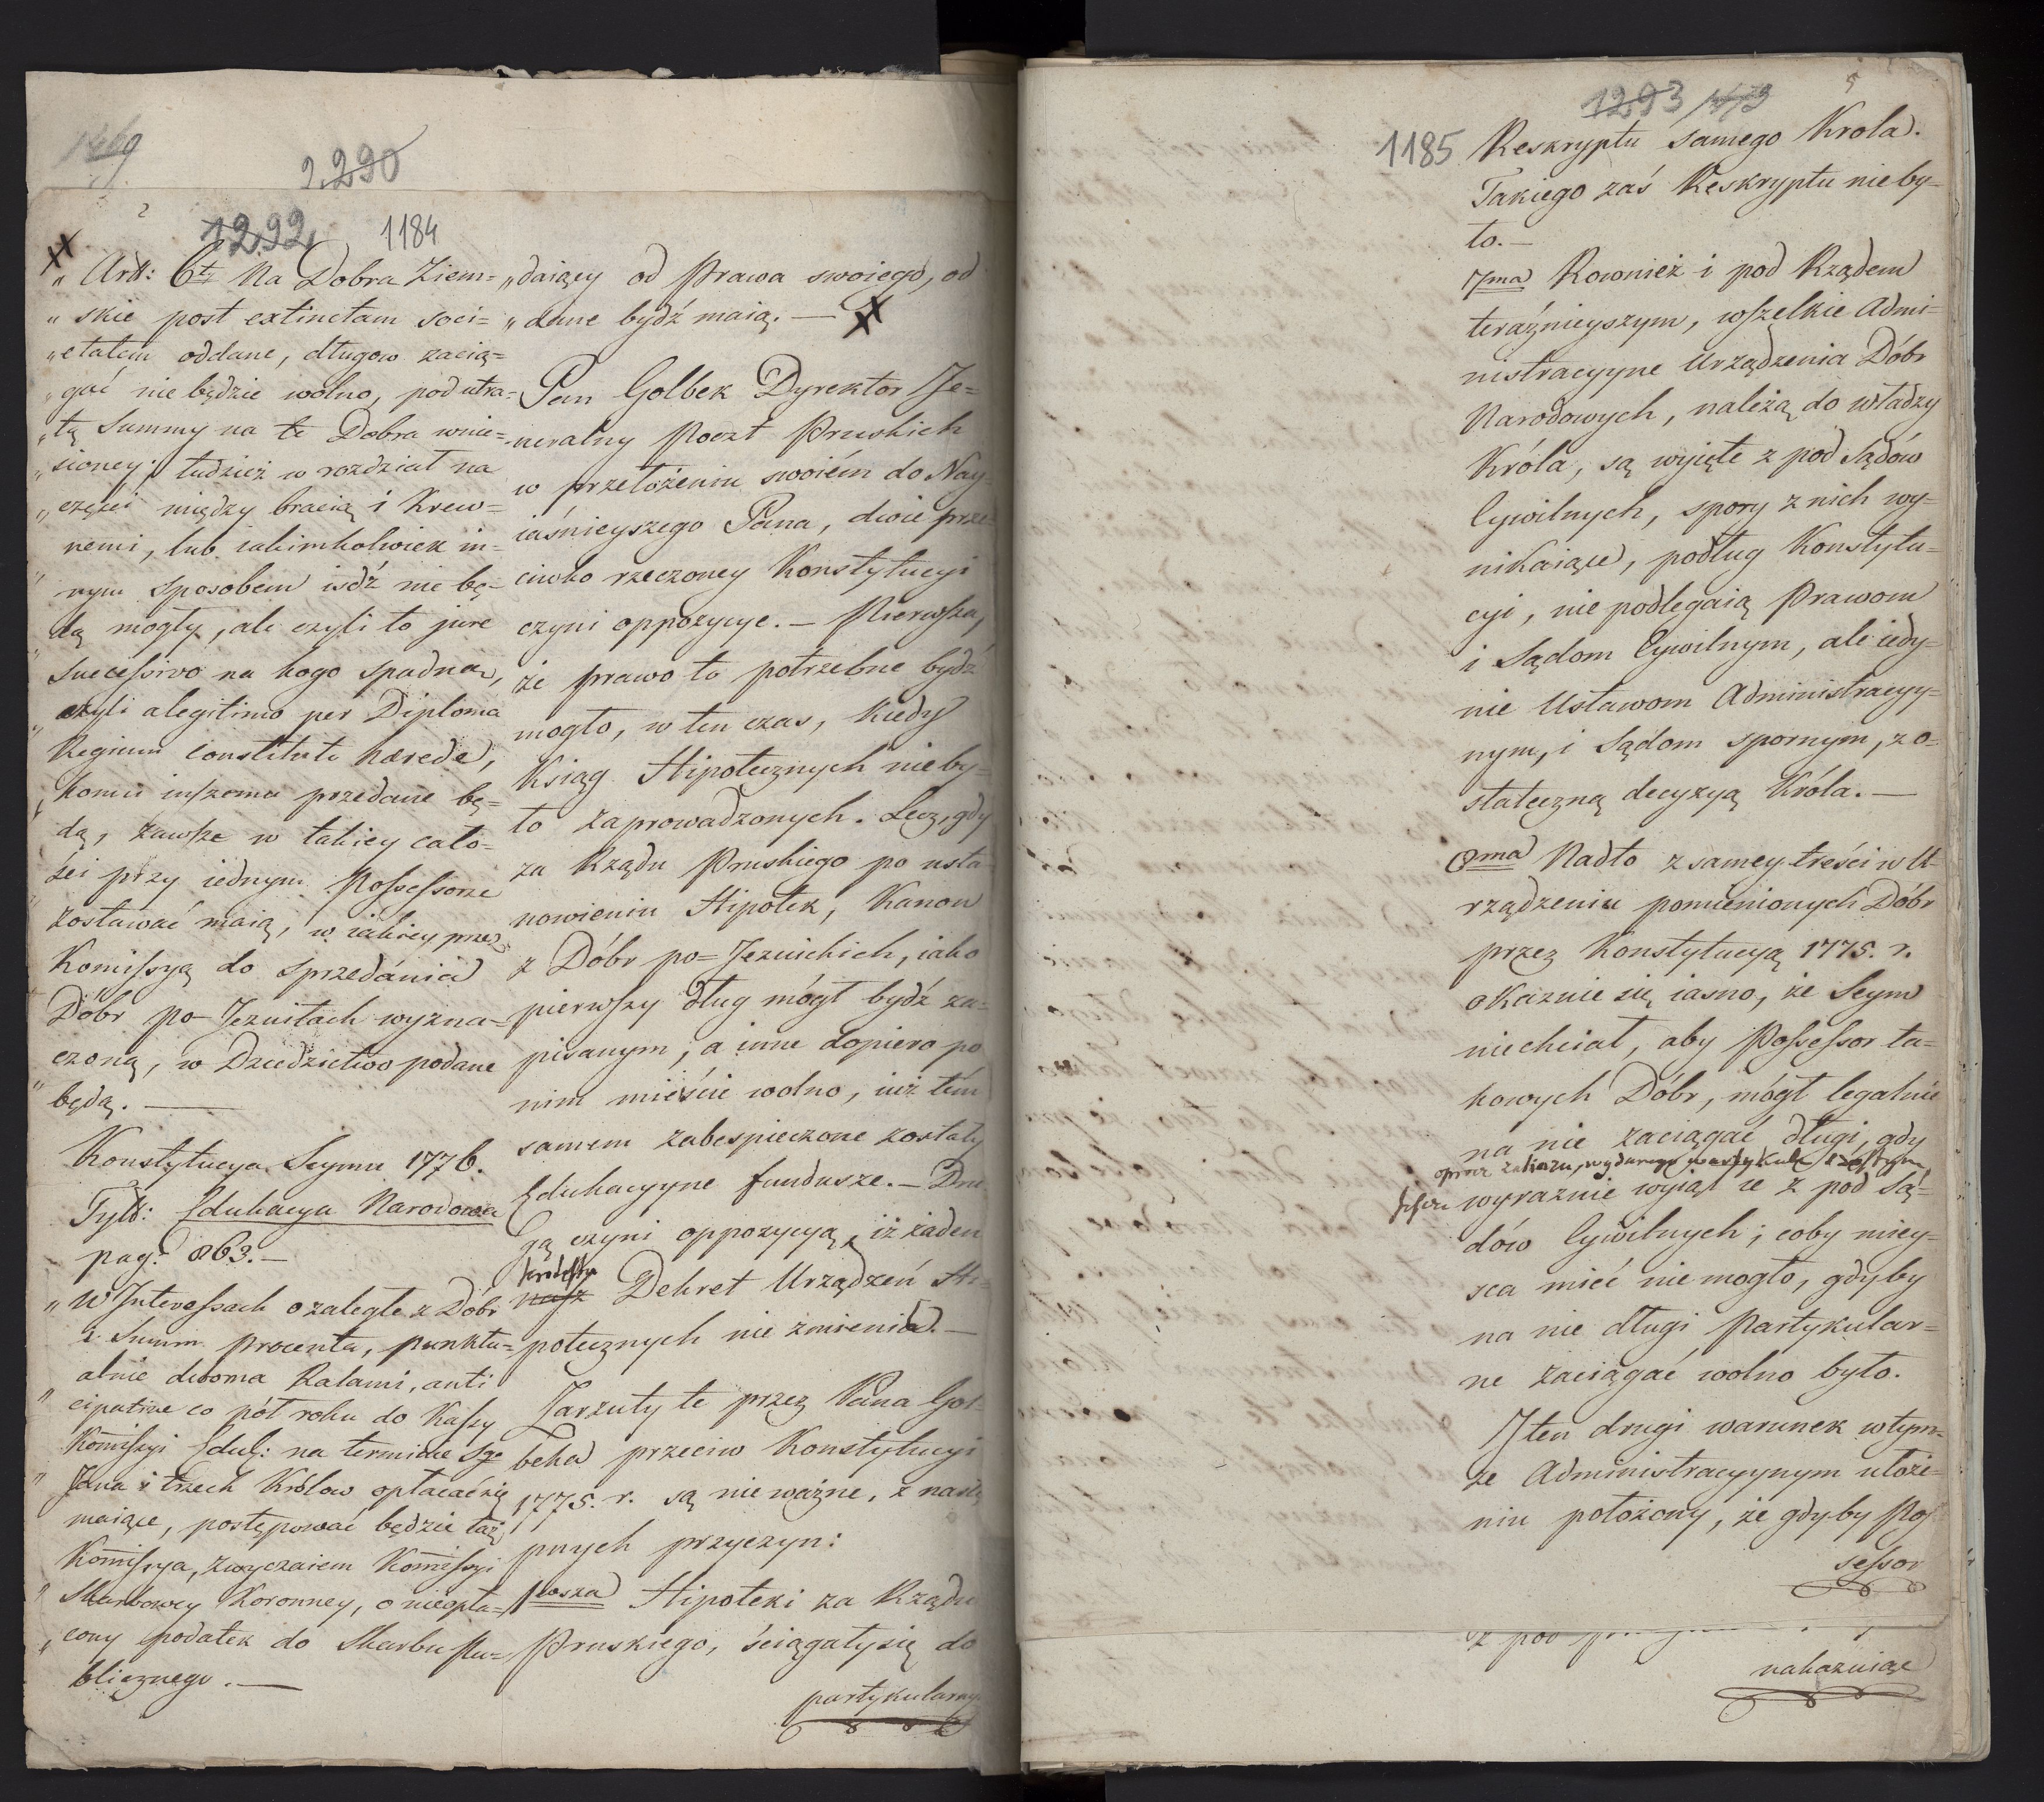 1469
2.290
2
1292 1184
„ Ard: 6ty Na Dobra Ziem=
„ skie post extinctam soci=
„ etatem oddane, długow zacią=
„ gać nie będzie wolno, pod utra=
„ tą Summy na te Dobra wnie=
„ sioney; tudzież w rozdział na
„ części między bracią i Krew=
nemi, lub iakimkolwiek in=
„ nym sposobem iśdź nie bę=
dą mogły, ale czyli to jure
„ successivo na kogo spadną,
czyli alegitimo per Diploma
„ Regium constituto hærede,
„ komu inszemu przedane bę=
dą, zawsze w takiey cało=
ści przy iednym Possessorze
„ zostawać maią, w iakiey przez
Komissyą do sprzedánia
Dóbr po-Jezuitach wyzna=
czoną, w Dziedzictwo podane
„ będą. —
Konstytucya Seymu 1776.
Tyłł: Edukacya Narodowa
pag: 863. —
„ W Interessach o zaległe z Dóbr
i Summ procenta, punktu=
alnie dwoma Ratami, anti
„ cipative co pół roku do Kassy
Komissyi Eduk: na terminie Sgo
„ Jana i trzech Królow opłacać się
maiące, postępować będzie taż
Komissya, zwyczaiem Komissyi
„ Skarbowey Koronney, o nieopła=
„ cony podatek do Skarbu Pu=
blicznego. —
„ daiącey od Prawa swoiego, od
„ dane bydź maią. —
Pan Golbek Dyrektor Je=
neralny Poczt Pruskich
w przełożeniu swoiém do Nay=
iaśnieyszego Pana, dwie prze=
ciwko rzeczoney Konstytucyi
czyni oppozycye. — Pierwsza,
że prawo to potrzebne bydź
mogło, w ten czas, kiedy
Ksiąg Hipotecznych nie by=
ło zaprowadzonych. Lecz, gdy
za Rządu Pruskiego po usta=
nowieniu Hipotek, Kanon
z Dóbr po=Jezuickich, iako
pierwszy dług mógł bydź za=
pisanym, a inne dopiero po
nim mieście wolno, iuż tém
samem zabespieczone zostały
Edukacyyne fundusze. — Dru=
gą czyni oppozycyą, iż żaden
nasz Dekret Urządzeń Hi=
potecznych nie zmienia. —
Zarzuty te przez Pana Gol=
beka przeciw Konstytucyi
1775. r. są nie ważne, z nastę
pnych przyczyn:
1wsza Hipoteki za Rządu
Pruskiego, ściągały się do
partykularny
5
1293 1473
1185 Reskryptu samego Krola.
Takiego zaś Reskryptu nie by=
ło. —
7ma Rownież i pod Rządem
teraźnieyszym, wszelkie Admi=
nistracyyne Urządzenia Dóbr
Narodowych, należą do władzy
Króla, są wyięte z pod Sądów
Cywilnych, spory z nich wy=
nikaiące, podług Konstytu=
cyi, nie podlegaią Prawom
i Sądom Cywilnym, ale iedy=
nie Ustawom Administracyy=
nym, i Sądom spornym, z o=
stateczną decyzyą Króla. —
8ma Nadto z samey treści w U=
rządzeniu pomienionych Dóbr
przez Konstytucyą 1775. r.
okazuie się iasno, że Seym
niechciał, aby Possessor ta=
kowych Dóbr, mógł legalnie
na nie zaciągać długi, gdy
oprócz zakazu, wydanego w artykule szóstym,
wyraznie wyiął ie z pod Są=
dów Cywilnych; coby miey=
sca mieć nie mogło, gdyby
na nie długi Partykular=
ne zaciągać wolno było.
I ten drugi warunek w tym=
że Administracyynym ułoże=
niu położony, że gdyby Pos
sessor
nakazuiąc